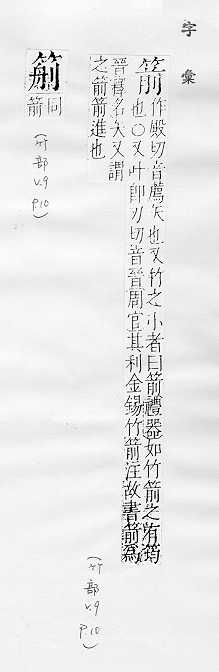 字彙
箭
作殿切音薦矢也又竹之小者曰箭禮器如竹箭之有筠
也○又叶即刃切音晉周官其利金錫竹箭注故書箭為
晉釋名矢又謂
之箭箭進也
(竹部 v.9 p.10)
同
箭
(竹部 v.9 p.10)